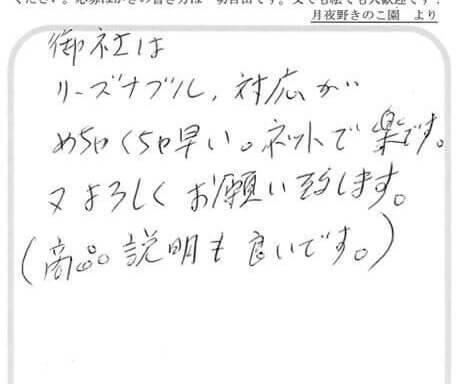 ください。応募はがきの書き方は一切自由です。文でも絵でも大歓迎です！
月夜野きのこ園 より
御社は
リーズナブル、対応が
めちゃくちゃ早い。ネットで楽です。
又よろしくお願い致します。
(商品説明も良いです。)